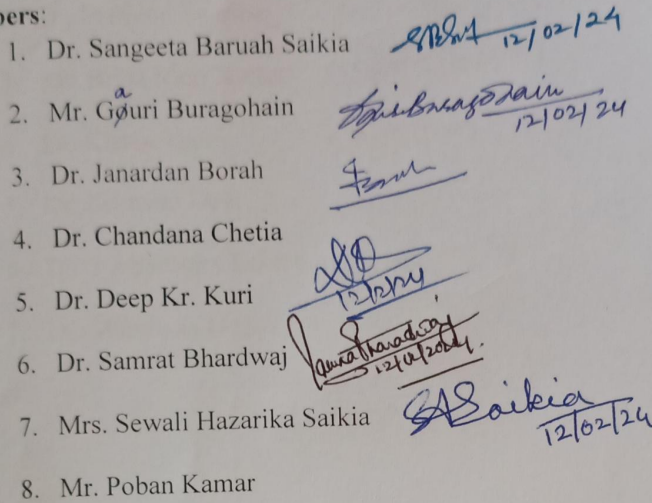 bers:
1. Dr. Sangeeta Baruah Saikia 12/02/24
2. Mr. Gauri Buragohain 12/02/24
3. Dr. Janardan Borah
4. Dr. Chandana Chetia
5. Dr. Deep Kr. Kuri 12/2/24
6. Dr. Samrat Bhardwaj
7. Mrs. Sewali Hazarika Saikia SASaikia 12/02/24
8. Mr. Poban Kamar